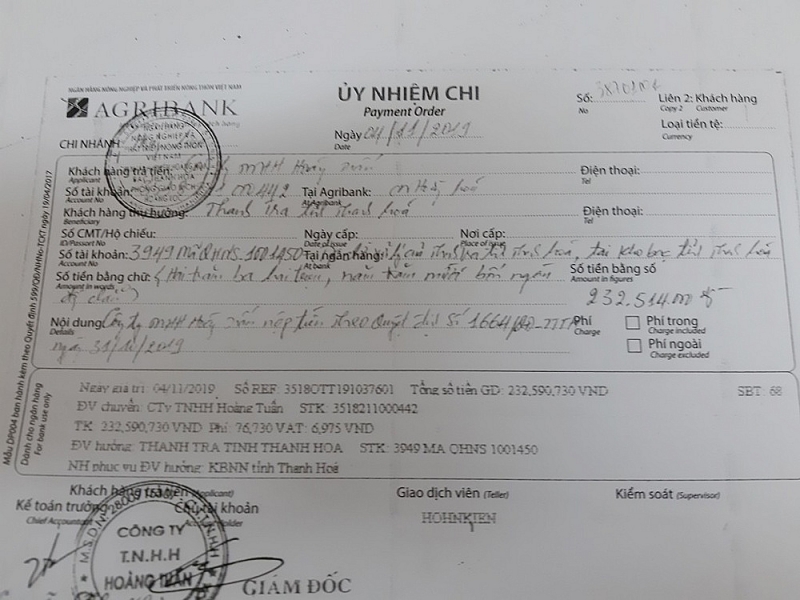 NGÂN HÀNG NÔNG NGHIỆP VÀ PHÁT TRIỂN NÔNG THÔN VIỆT NAM
AGRIBANK
CHI NHÁNH
ỦY NHIỆM CHI
Payment Order
Ngày 04/11/2019
Date
Số:
No
Liên 2: Khách hàng
Copy 2 Customer
Loại tiền tệ:
Currency
Khách hàng trả tiền:
Applicant
Điện thoại:
Tel
Số tài khoản:
Account No
Tại Agribank:
At Agribank
Khách hàng thụ hưởng: Thanh Tra tỉnh Thanh Hoá
Beneficiary
Điện thoại:
Tel
Số CMT/Hộ chiếu:
ID/Passport No
Ngày cấp:
Date of issue
Nơi cấp:
Place of issue
Số tài khoản: 3949 Mã QHNS 1001450
Account No
Tại ngân hàng:
At bank
Số tiền bằng chữ: (Hai trăm ba hai triệu, năm trăm mười bốn ngàn
Amount in words
đ chẵn)
Số tiền bằng số
Amount in figures
232.514.000 đ
Nội dung: Công ty TNHH Hoàng Tuấn nộp tiền Theo Quyết định Số 1664/QĐ-TTTH
Details
ngày 31/10/2019
Phí
Charge
Phí trong
Charge included
Phí ngoài
Charge excluded
Mẫu DP004 ban hành kèm theo Quyết định 599/QĐ/NHNo-TCKT ngày 19/04/2017
Dành cho ngân hàng
For bank use only
Ngày giá trị: 04/11/2019 Số REF 3518OTT191037601 Tổng số tiền GD: 232,590,730 VND SBT: 68
ĐV chuyển: CTy TNHH Hoàng Tuấn STK: 3518211000442
TK 232,590,730 VND Phí: 76,730 VAT: 6,975 VND
ĐV hưởng: THANH TRA TINH THANH HOA STK: 3949 MA QHNS 1001450
NH phục vụ ĐV hưởng: KBNN tỉnh Thanh Hoá
Khách hàng trả tiền (Applicant)
Kế toán trưởng
Chief Accountant
Chủ tài khoản
Giao dịch viên (Teller)
HOHNKIEN
Kiểm soát (Supervisor)
CÔNG TY
T.N.H.H
HOÀNG TUẤN
GIÁM ĐỐC